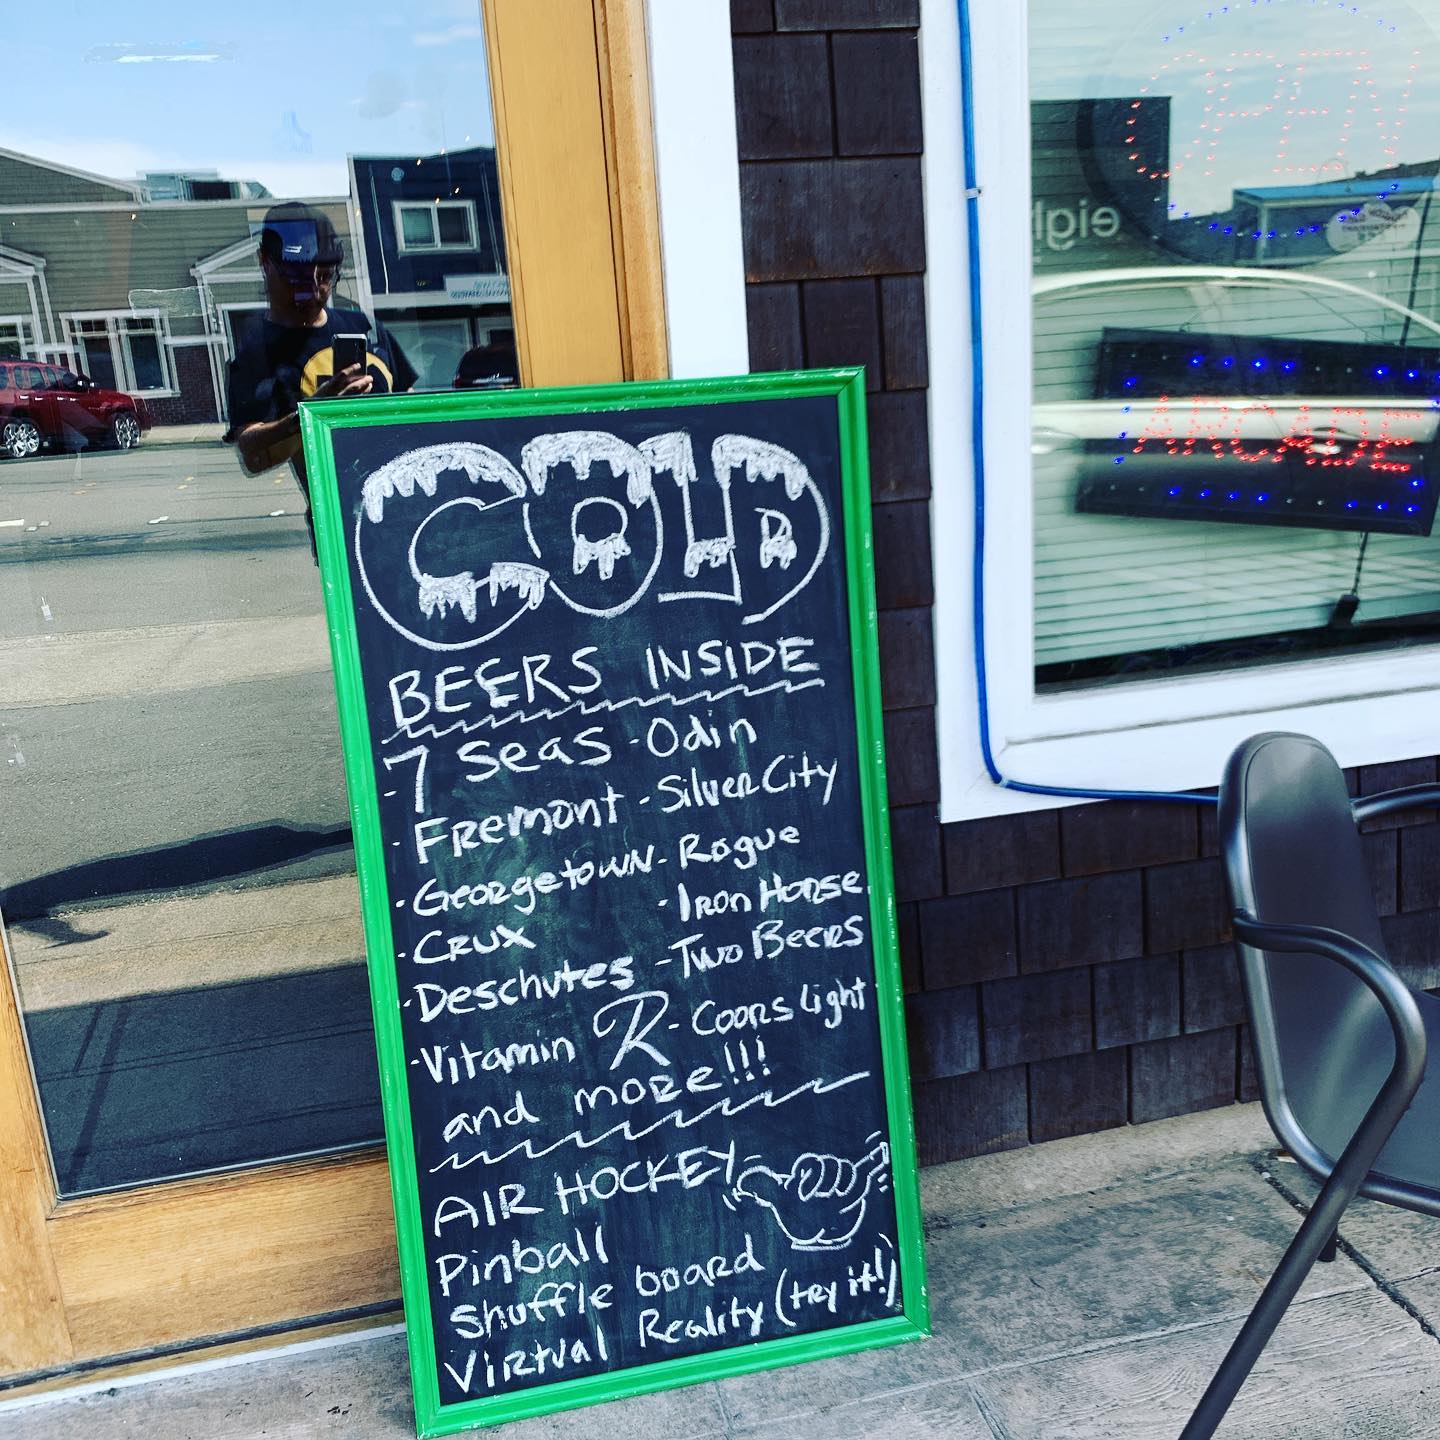 OPEN
ARCADE
COLD
BEERS INSIDE
- 7 Seas - Odin
- Fremont - Silver City
- Georgetown - Rogue
- Crux - Iron Horse
- Deschutes - Two Beers
- Vitamin R - Coors Light
and more!!!
AIR HOCKEY
Pinball
Shuffle board
Virtual Reality (try it!)